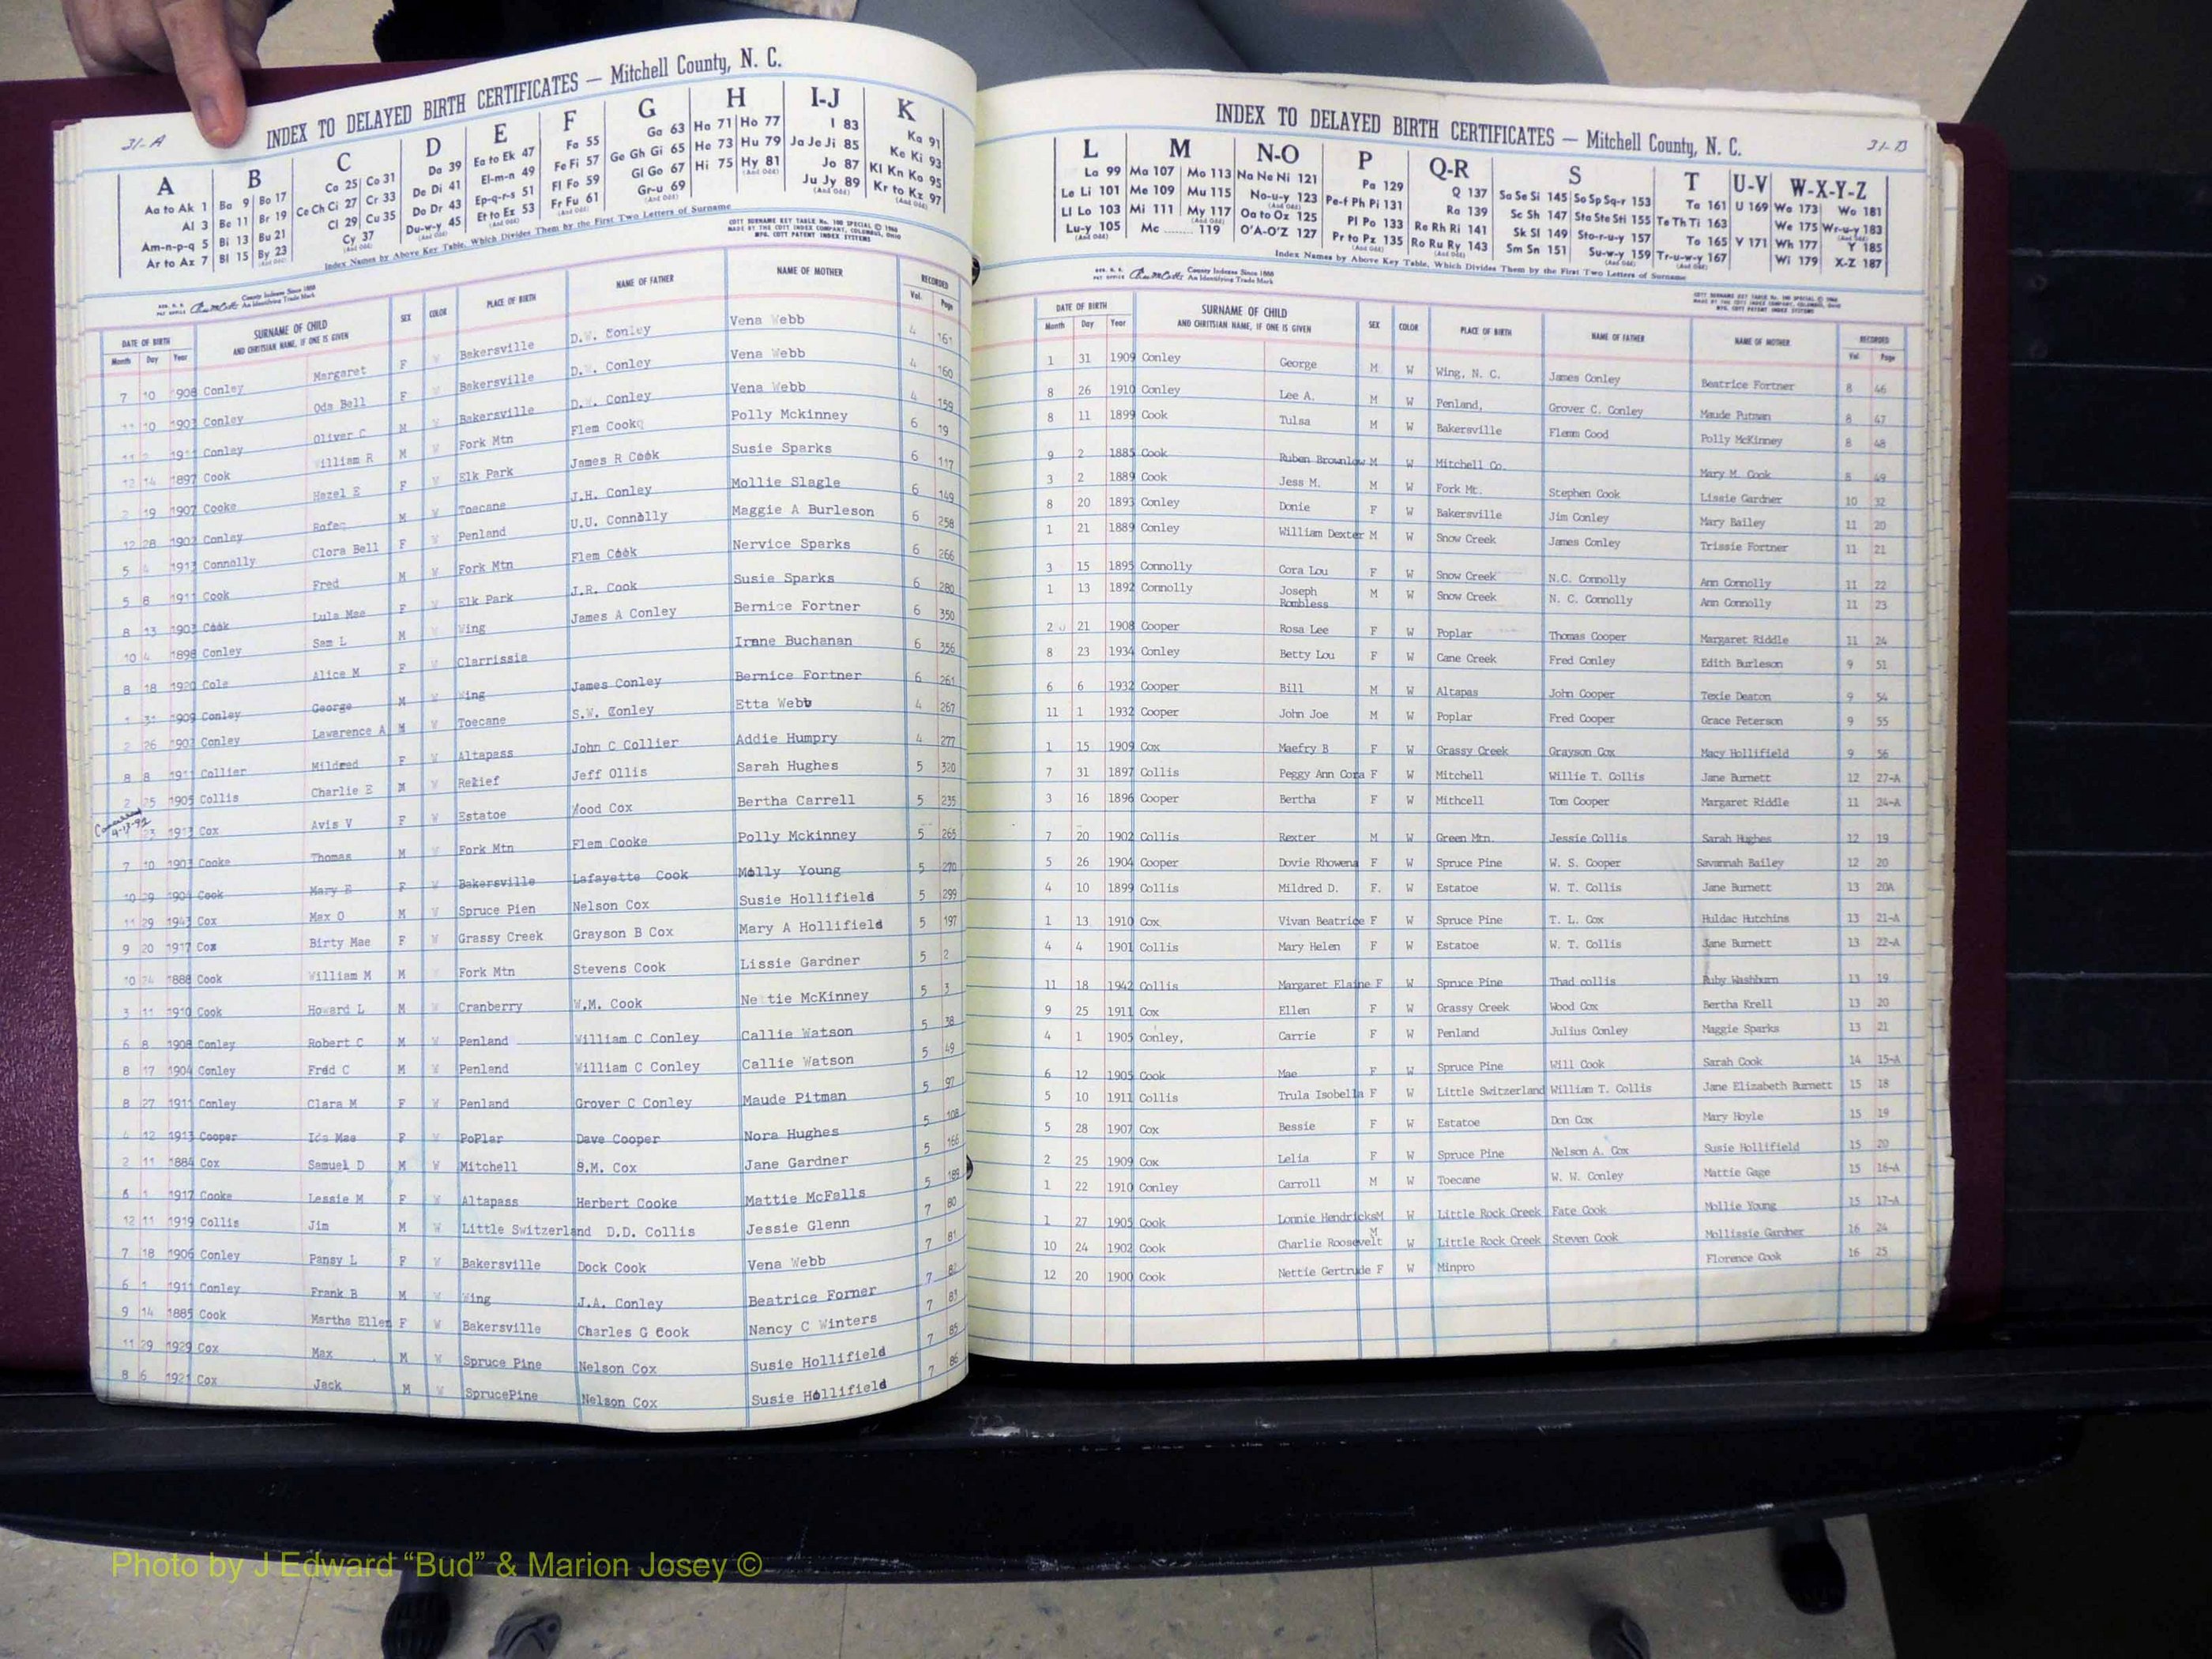 31-A
INDEX TO DELAYED BIRTH CERTIFICATES — Mitchell County, N. C.
A B C D E F G H I-J K
Aa to Ak 1 Ba 9 Bo 17 Ca 25 Co 31 Da 39 Ea to Ek 47 Fa 55 Ga 63 Ha 71 Ho 77 I 83 Ka 91
Al 3 Be 11 Br 19 Ce Ch Ci 27 Cr 33 De Di 41 El-m-n 49 Fe Fi 57 Ge Gh Gi 65 He 73 Hu 79 Ja Je Ji 85 Ke Ki 93
Am-n-p-q 5 Bi 13 Bu 21 Cl 29 Cu 35 Do Dr 43 Ep-q-r-s 51 Fl Fo 59 Gl Go 67 Hi 75 Hy 81 Jo 87 Kl Kn Ko 95
Ar to Az 7 Bl 15 By 23 Cy 37 Du-w-y 45 Et to Ez 53 Fr Fu 61 Gr-u 69 Ju Jy 89 Kr to Kz 97
Index Names by Above Key Table, Which Divides Them by the First Two Letters of Surname
COTT SURNAME KEY TABLE No. 100 SPECIAL © 1960
MADE BY THE COTT INDEX COMPANY, COLUMBUS, OHIO
MFG. COTT PATENT INDEX SYSTEMS
County Indexes Since 1888
An Identifying Trade Mark
DATE OF BIRTH SURNAME OF CHILD SEX COLOR PLACE OF BIRTH NAME OF FATHER NAME OF MOTHER RECORDED
Month Day Year AND CHRITSIAN NAME, IF ONE IS GIVEN Vol. Page
7 10 1908 Conley Margaret F W Bakersville D.W. Conley Vena Webb 4 161
11 10 1903 Conley Oda Bell F W Bakersville D.W. Conley Vena Webb 4 160
11 2 1911 Conley Oliver C M W Bakersville D.W. Conley Vena Webb 4 159
12 14 1897 Cook William R M W Fork Mtn Flem Cook Polly Mckinney 6 19
2 19 1907 Cooke Hazel E F W Elk Park James R Cook Susie Sparks 6 117
12 28 1902 Conley Rafe M W Toecane J.H. Conley Mollie Slagle 6 149
5 4 1913 Connolly Clora Bell F W Penland U.U. Connolly Maggie A Burleson 6 258
5 8 1911 Cook Fred M W Fork Mtn Flem Cook Nervice Sparks 6 266
8 13 1903 Cook Lula Mae F W Elk Park J.R. Cook Susie Sparks 6 280
10 4 1898 Conley Sam L M W Wing James A Conley Bernice Fortner 6 350
8 18 1920 Cole Alice M F W Clarrissia Irene Buchanan 6 356
1 31 1909 Conley George M W Wing James Conley Bernice Fortner 6 261
2 26 1902 Conley Lawarence A M W Toecane S.W. Conley Etta Webb 4 267
8 8 1911 Collier Mildred F W Altapass John C Collier Addie Humpry 4 277
2 25 1905 Collis Charlie E M W Relief Jeff Ollis Sarah Hughes 5 320
4-13-92
23 1913 Cox Avis V F W Estatoe Wood Cox Bertha Carrell 5 235
7 10 1903 Cooke Thomas M W Fork Mtn Flem Cooke Polly Mckinney 5 265
10 29 1904 Cook Mary E F W Bakersville Lafayette Cook Molly Young 5 270
11 29 1943 Cox Max O M W Spruce Pien Nelson Cox Susie Hollifield 5 299
9 20 1917 Cox Birty Mae F W Grassy Creek Grayson B Cox Mary A Hollifield 5 197
10 24 1888 Cook William M M W Fork Mtn Stevens Cook Lissie Gardner 5 2
3 11 1910 Cook Howard L M W Cranberry W.M. Cook Nettie McKinney 5 3
6 8 1908 Conley Robert C M W Penland William C Conley Callie Watson 5 38
8 17 1904 Conley Fred C M W Penland William C Conley Callie Watson 5 49
8 27 1911 Conley Clara M F W Penland Grover C Conley Maude Pitman 5 97
4 12 1913 Cooper Ida Mae F W PoPlar Dave Cooper Nora Hughes 5 108
2 11 1884 Cox Samuel D M W Mitchell S.M. Cox Jane Gardner 5 166
6 1 1917 Cooke Lessie M F W Altapass Herbert Cooke Mattie McFalls 5 189
12 11 1919 Collis Jim M W Little Switzerland D.D. Collis Jessie Glenn 7 80
7 18 1906 Conley Pansy L F W Bakersville Dock Cook Vena Webb 7 81
6 1 1911 Conley Frank B M W Wing J.A. Conley Beatrice Forner 7 82
9 14 1885 Cook Martha Ellen F W Bakersville Charles G Cook Nancy C Winters 7 83
11 29 1929 Cox Max M W Spruce Pine Nelson Cox Susie Hollifield 7 85
8 6 1921 Cox Jack M W SprucePine Nelson Cox Susie Hollifield 7 86
31-B
INDEX TO DELAYED BIRTH CERTIFICATES — Mitchell County, N. C.
L M N-O P Q-R S T U-V W-X-Y-Z
La 99 Ma 107 Mo 113 Na Ne Ni 121 Pa 129 Q 137 Sa Se Si 145 So Sp Sq-r 153 Ta 161 U 169 Wa 173 Wo 181
Le Li 101 Me 109 Mu 115 No-u-y 123 Pe-f Ph Pi 131 Ra 139 Sc Sh 147 Sta Ste Sti 155 Te Th Ti 163 We 175 Wr-u-y 183
Ll Lo 103 Mi 111 My 117 Oa to Oz 125 Pl Po 133 Re Rh Ri 141 Sk Sl 149 Sto-r-u-y 157 To 165 V 171 Wh 177 Y 185
Lu-y 105 Mc 119 O'A-O'Z 127 Pr to Pz 135 Ro Ru Ry 143 Sm Sn 151 Su-w-y 159 Tr-u-w-y 167 Wi 179 X-Z 187
Index Names by Above Key Table, Which Divides Them by the First Two Letters of Surname
County Indexes Since 1888
An Identifying Trade Mark
COTT SURNAME KEY TABLE No. 100 SPECIAL © 1960
MADE BY THE COTT INDEX COMPANY, COLUMBUS, OHIO
MFG. COTT PATENT INDEX SYSTEMS
DATE OF BIRTH SURNAME OF CHILD SEX COLOR PLACE OF BIRTH NAME OF FATHER NAME OF MOTHER RECORDED
Month Day Year AND CHRITSIAN NAME, IF ONE IS GIVEN Vol. Page
1 31 1909 Conley George M W Wing, N. C. James Conley Beatrice Fortner 8 46
8 26 1910 Conley Lee A. M W Penland, Grover C. Conley Maude Putman 8 47
8 11 1899 Cook Tulsa M W Bakersville Flemm Cood Polly McKinney 8 48
9 2 1885 Cook Ruben Brownlow M W Mitchell Co. Mary M. Cook 8 49
3 2 1889 Cook Jess M. M W Fork Mt. Stephen Cook Lissie Gardner 10 32
8 20 1893 Conley Donie F W Bakersville Jim Conley Mary Bailey 11 20
1 21 1889 Conley William Dexter M W Snow Creek James Conley Trissie Fortner 11 21
3 15 1895 Connolly Cora Lou F W Snow Creek N.C. Connolly Ann Connolly 11 22
1 13 1892 Connolly Joseph M W Snow Creek N. C. Connolly Ann Connolly 11 23
Rombless
2 21 1908 Cooper Rosa Lee F W Poplar Thomas Cooper Margaret Riddle 11 24
8 23 1934 Conley Betty Lou F W Cane Creek Fred Conley Edith Burleson 9 51
6 6 1932 Cooper Bill M W Altapas John Cooper Texie Deaton 9 54
11 1 1932 Cooper John Joe M W Poplar Fred Cooper Grace Peterson 9 55
1 15 1909 Cox Maefry B F W Grassy Creek Grayson Cox Macy Hollifield 9 56
7 31 1897 Collis Peggy Ann Cora F W Mitchell Willie T. Collis Jane Burnett 12 27-A
3 16 1896 Cooper Bertha F W Mithcell Tom Cooper Margaret Riddle 11 24-A
7 20 1902 Collis Rexter M W Green Mtn. Jessie Collis Sarah Hughes 12 19
5 26 1904 Cooper Dovie Rhowena F W Spruce Pine W. S. Cooper Savannah Bailey 12 20
4 10 1899 Collis Mildred D. F. W Estatoe W. T. Collis Jane Burnett 13 20A
1 13 1910 Cox Vivan Beatrice F W Spruce Pine T. L. Cox Huldac Hutchins 13 21-A
4 4 1901 Collis Mary Helen F W Estatoe W. T. Collis Jane Burnett 13 22-A
11 18 1942 Collis Margaret Elaine F W Spruce Pine Thad collis Ruby Washburn 13 19
9 25 1911 Cox Ellen F W Grassy Creek Wood Cox Bertha Krell 13 20
4 1 1905 Conley, Carrie F W Penland Julius Conley Maggie Sparks 13 21
6 12 1905 Cook Mae F W Spruce Pine Will Cook Sarah Cook 14 15-A
5 10 1911 Collis Trula Isobella F W Little Switzerland William T. Collis Jane Elizabeth Burnett 15 18
5 28 1907 Cox Bessie F W Estatoe Don Cox Mary Hoyle 15 19
2 25 1909 Cox Lelia F W Spruce Pine Nelson A. Cox Susie Hollifield 15 20
1 22 1910 Conley Carroll M W Toecane W. W. Conley Mattie Gage 15 16-A
1 27 1905 Cook Lonnie Hendricks M W Little Rock Creek Fate Cook Mollie Young 15 17-A
10 24 1902 Cook Charlie Roosevelt M W Little Rock Creek Steven Cook Mollissie Gardner 16 24
12 20 1900 Cook Nettie Gertrude F W Minpro Florence Cook 16 25
Photo by J Edward “Bud” & Marion Josey ©